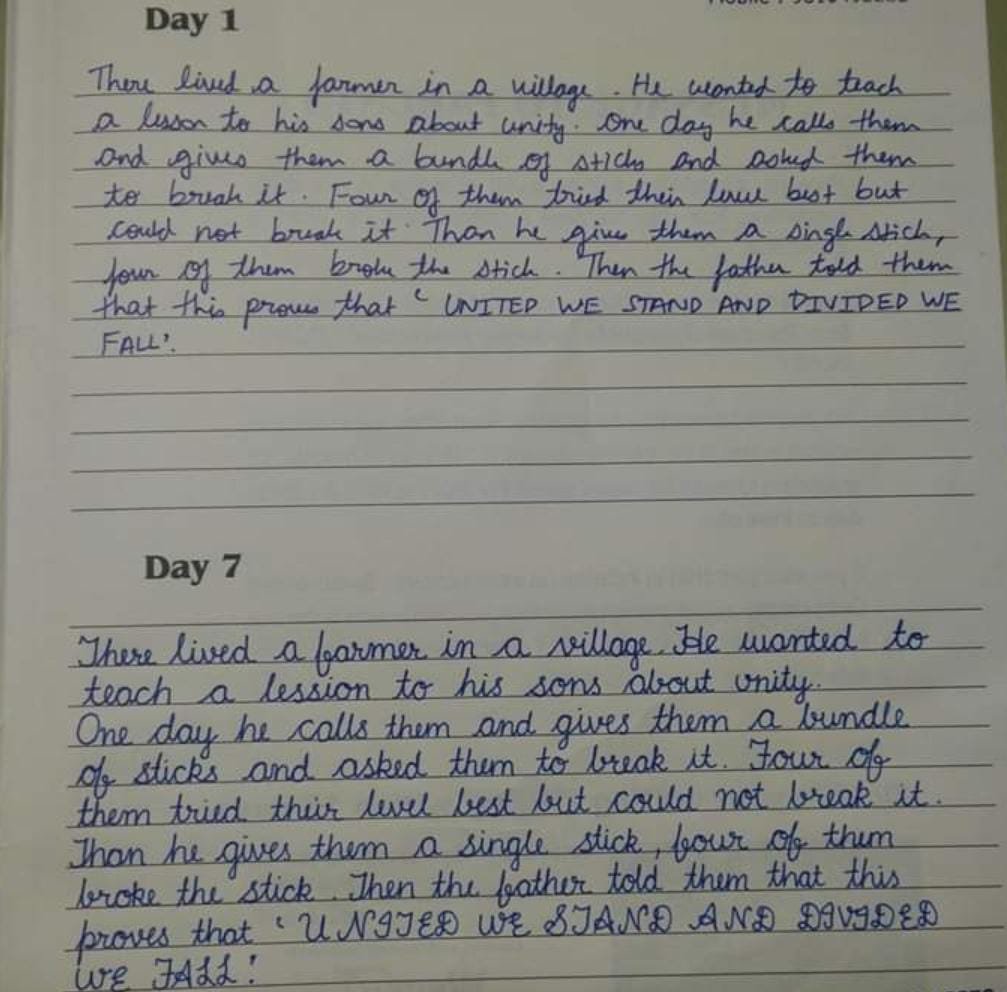 Day 1
There lived a farmer in a village. He wanted to teach
a lesson to his sons about unity. One day he calls them
and gives them a bundle of sticks and asked them
to break it. Four of them tried their level best but
could not break it. Than he gives them a single stick,
four of them broke the stick. Then the father told them
that this proves that ' UNITED WE STAND AND DIVIDED WE
FALL'.
Day 7
There lived a farmer in a village. He wanted to
teach a lession to his sons about unity.
One day he calls them and gives them a bundle
of sticks and asked them to break it. Four of
them tried their level best but could not break it.
Than he gives them a single stick, four of them
broke the stick. Then the father told them that this
proves that ' UNITED WE STAND AND DIVIDED
WE FALL'.